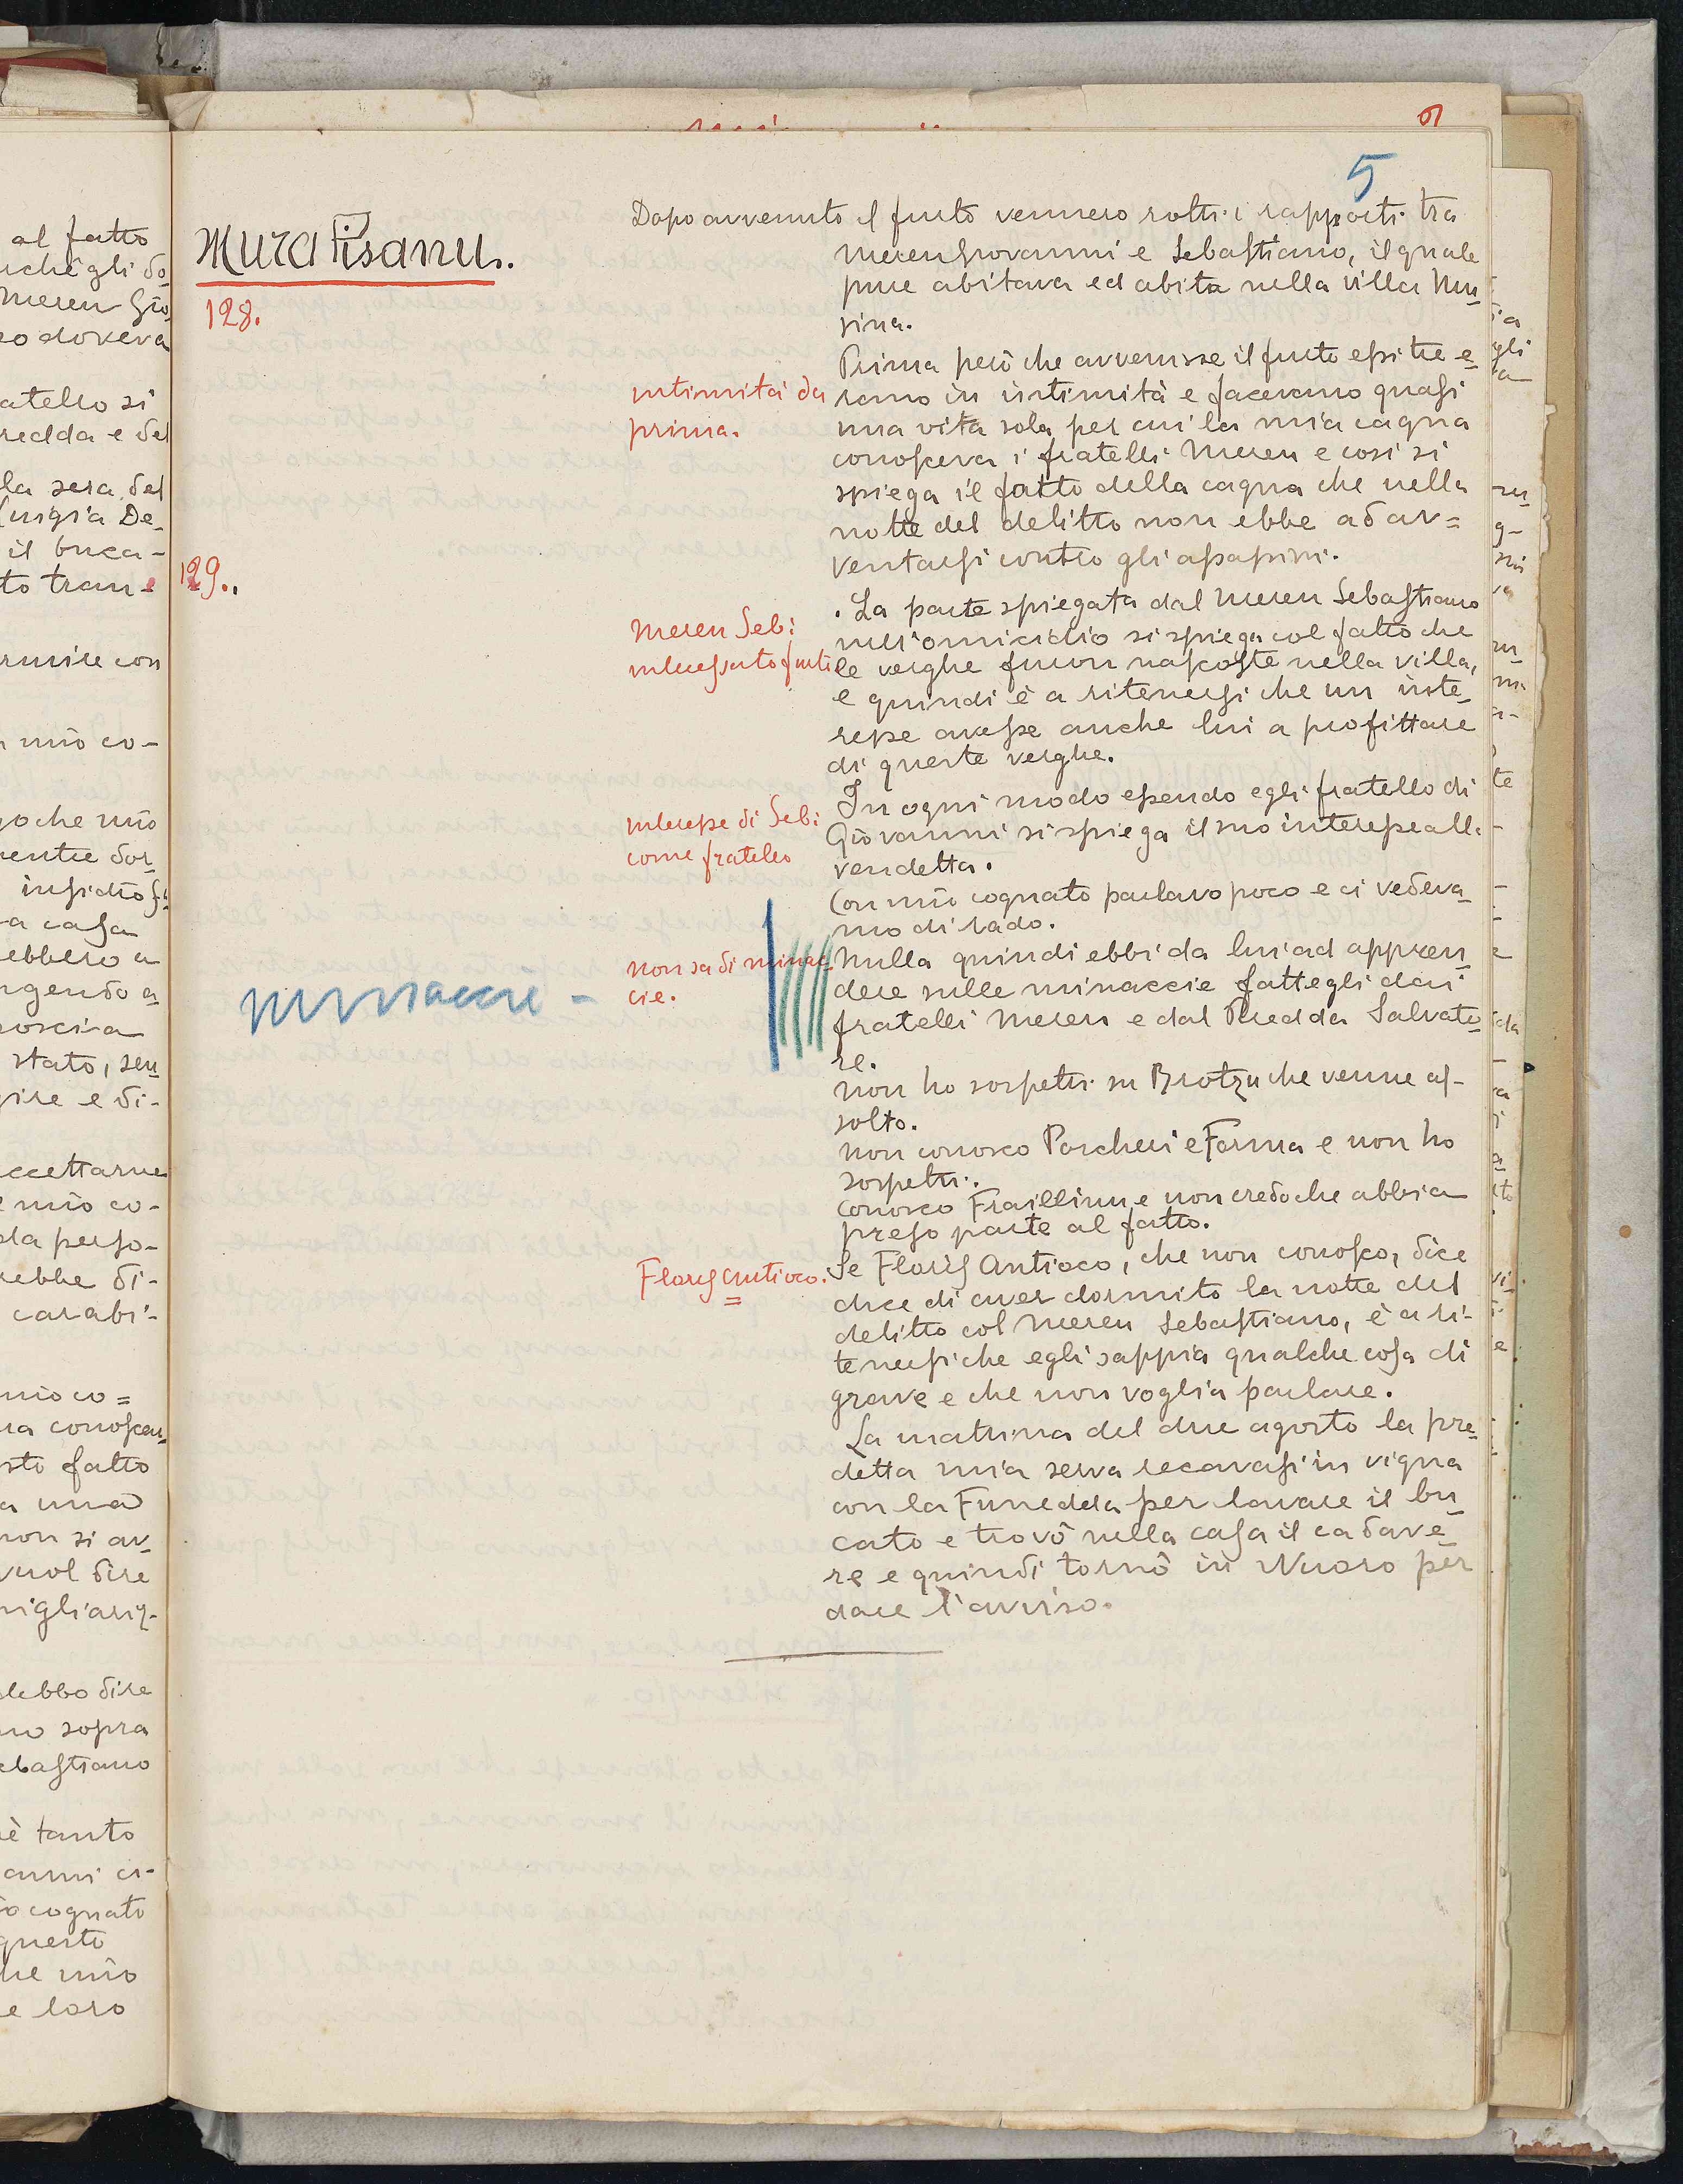 6
5
Mura Pisanu.
128.
Dopo avvenuto il furto vennero rotti i rapporti tra
Mereu Giovanni e Sebastiano, il quale
pure abitava ed abita nella villa Mu-
sina.
Prima però che avvenisse il furto essi tre e-
intimità da
prima.
rano in intimità e facevano quasi
una vita sola, per cui la mia cagna
conosceva i fratelli Mereu e così si
spiega il fatto della cagna che nella
notte del delitto non ebbe ad av=
ventarsi contro gli assassini.
129.
Mereu Seb:
interessato furti
. La parte spiegata dal Mereu Sebastiano
nell'omicidio si spiega col fatto che
le verghe furon nascoste nella villa,
e quindi è a ritenersi che un inte-
resse avesse anche lui a profittare
di queste verghe.
interesse di Seb:
come fratello
In ogni modo essendo egli fratello di
Giovanni si spiega il suo interesse alla
vendetta.
Con mio cognato parlavo poco e ci vedeva-
mo di rado.
minaccie -
non sa di minac-
cie.
Nulla quindi ebbi da lui ad appren-
dere sulle minaccie fattegli dai
fratelli Mereu e dal Piredda Salvato-
re.
Non ho sospetti su Brotzu che venne as-
solto.
Non conosco Porcheri e Farina e non ho
sospetti.
Conosco Fraillinu e non credo che abbia
preso parte al fatto.
Floris Antioco.
Se Floris Antioco, che non conosco, dice
dice di aver dormito la notte del
delitto col Mereu Sebastiano, è a ri-
tenersi che egli sappia qualche cosa di
grave e che non voglia parlare.
La mattina del due agosto la pre-
detta mia serva recavasi in vigna
con la Funedda per lavare il bu-
cato e trovò nella casa il cadave-
re e quindi tornò in Nuoro per
dare l'avviso.